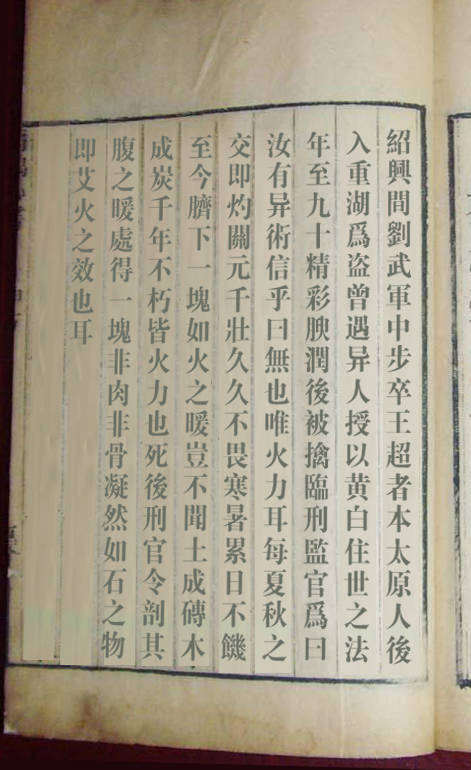 紹興間劉武軍中步卒王超者本太原人後
入重湖爲盗曾遇异人授以黄白住世之法
年至九十精彩腴潤後被擒臨刑監官爲曰
汝有异術信乎曰無也唯火力耳每夏秋之
交即灼關元千壯久久不畏寒暑累日不饑
至今臍下一塊如火之暖豈不聞土成磚木
成炭千年不朽皆火力也死後刑官令剖其
腹之暖處得一塊非肉非骨凝然如石之物
即艾火之效也耳